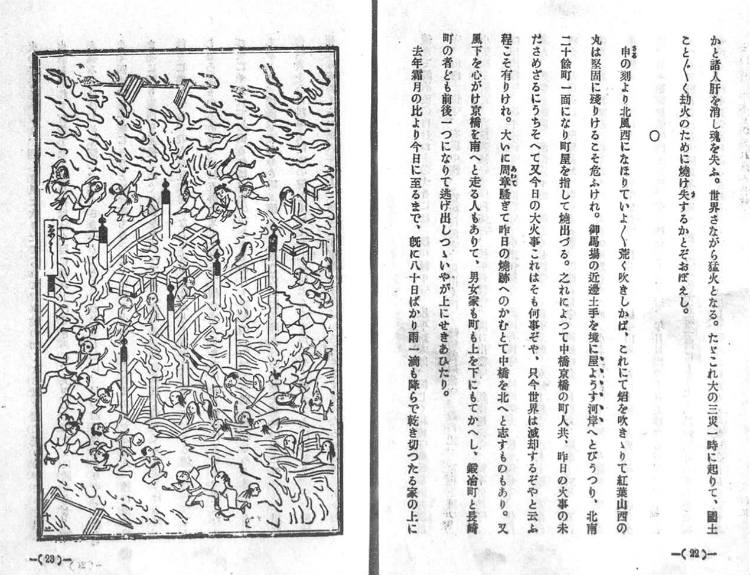 かと諸人肝を消し魂を失ふ。世界さながら猛火となる。たゞこれ大の三災一時に起りて、國土
こと〴〵く劫火のために燒け失するかとぞおぼえし。
○
申の刻より北風西になほりていよ〳〵荒く吹きしかば、これにて焰を吹きゝりて紅葉山西の
丸は堅固に殘りけるこそ危ふけれ。御馬場の近邊土手を境に屋ようす河岸へとびうつり、北南
二十餘町一面になり町屋を指して燒出づる。之れによつて中橋京橋の町人共、昨日の火事の未
ださめざるにうちそへて又今日の大火事これはそも何事ぞや、只今世界は滅却するぞやと云ふ
程こそ有りけれ。大いに周章騒ぎて昨日の燒跡へのかむとて中橋を北へと志すものもあり。又
風下を心がけ京橋を南へと走る人もありて、男女家も町も上を下にもてかへし、鍛冶町と長崎
町の者ども前後一つになりて逃げ出しつゝいやが上にせきあひたり。
去年霜月の比より今日に至るまで、旣に八十日ばかり雨一滴も降らで乾き切つたる家の上に
—( 22 )—
—( 23 )—